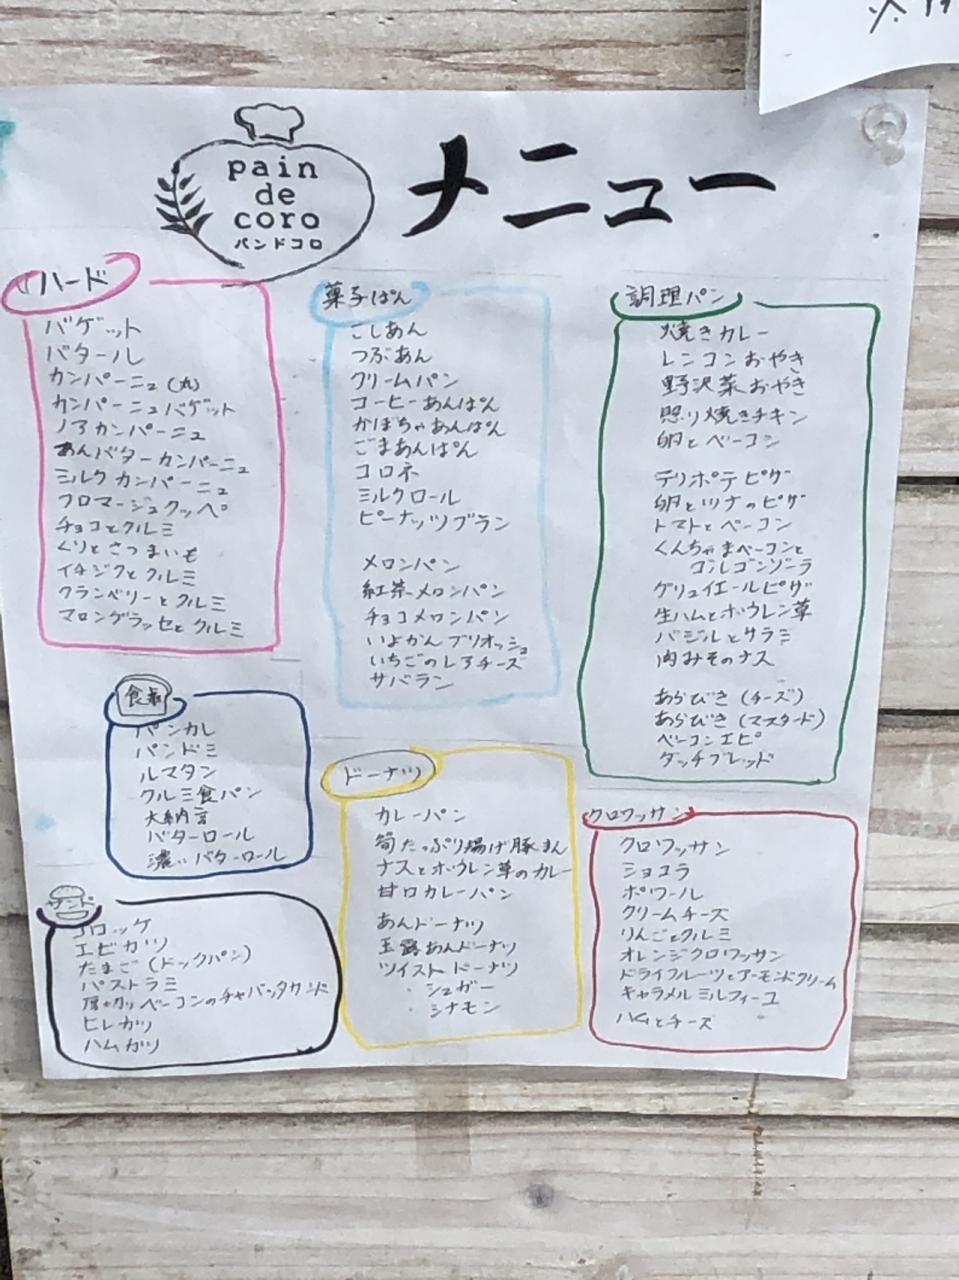 pain
de
coro
パンドコロ
メニュー
ハード
バゲット
バタール
カンパーニュ(丸)
カンパーニュバゲット
ノアカンパーニュ
あんバターカンパーニュ
ミルクカンパーニュ
フロマージュクッペ
チョコとクルミ
くりとさつまいも
イチジクとクルミ
クランベリーとクルミ
マロングラッセとクルミ
菓子ぱん
こしあん
つぶあん
クリームパン
コーヒーあんぱん
かぼちゃあんぱん
ごまあんぱん
コロネ
ミルクロール
ピーナッツブラン
メロンパン
紅茶メロンパン
チョコメロンパン
いよかんブリオッシュ
いちごのレアチーズ
サバラン
調理パン
焼きカレー
レンコンおやき
野沢菜おやき
照り焼きチキン
卵とベーコン
デリポテピザ
卵とツナのピザ
トマトとベーコン
くんちゃまベーコンと
ゴルゴンゾーラ
グリュイエールピザ
生ハムとホウレン草
バジルとサラミ
肉みそのナス
あらびき(チーズ)
あらびき(マスタード)
ベーコンエピ
ダッチブレッド
食ぱん
パンカレ
パンドミ
ルマタン
クルミ食パン
大納言
バターロール
濃いバターロール
サンド
コロッケ
エビカツ
たまご(ドックパン)
パストラミ
厚切りベーコンのチャバッタサンド
ヒレカツ
ハムカツ
ドーナツ
カレーパン
筍たっぷり揚げ豚まん
ナスとホウレン草のカレー
甘口カレーパン
あんドーナツ
玉露あんドーナツ
ツイストドーナツ
・シュガー
・シナモン
クロワッサン
クロワッサン
ショコラ
ポワール
クリームチーズ
りんごとクルミ
オレンジクロワッサン
ドライフルーツとアーモンドクリーム
キャラメルミルフィーユ
ハムとチーズ